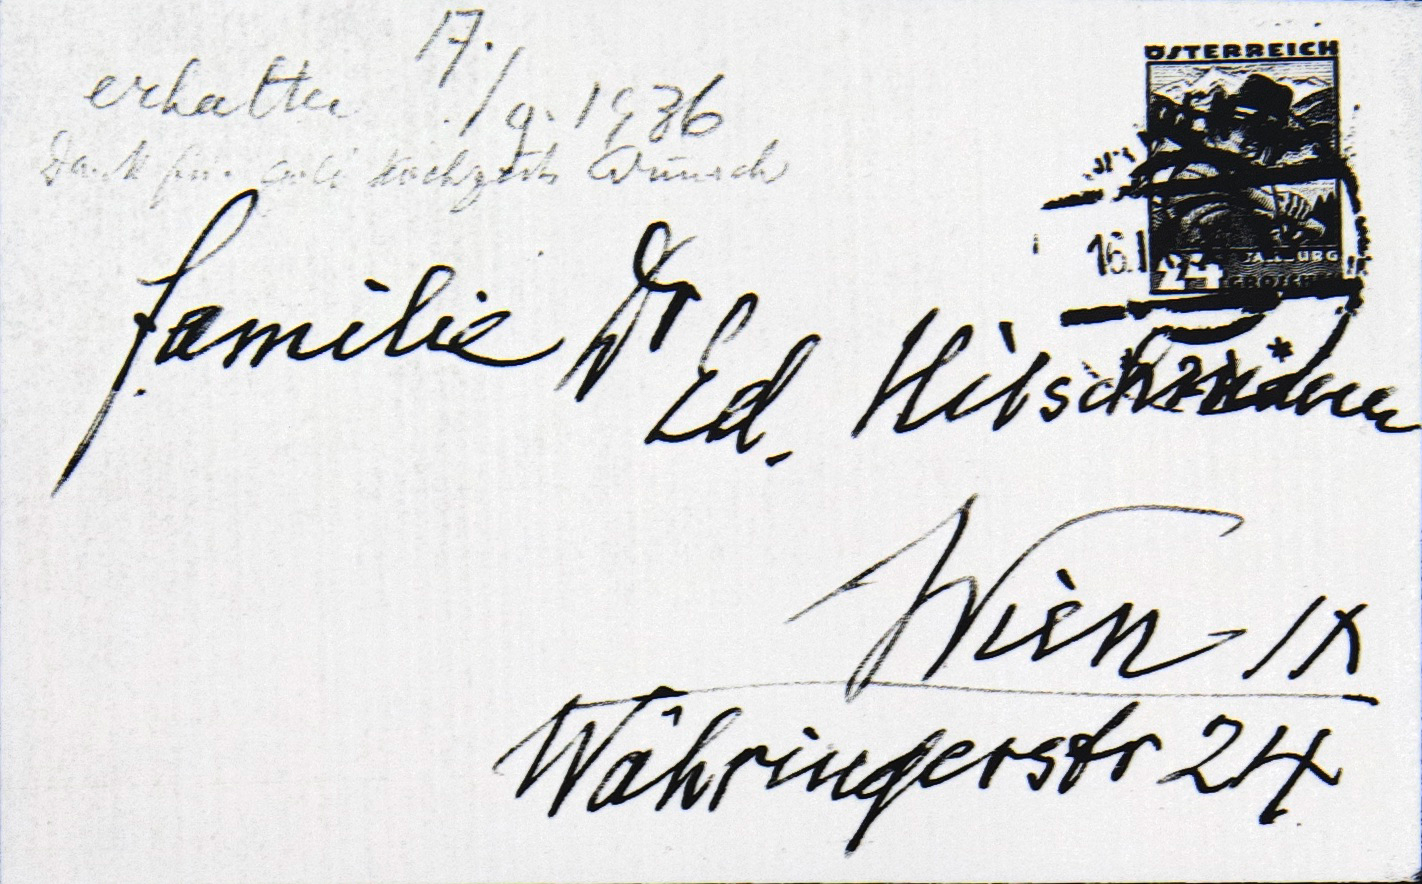 17.
erhalten /9. 1936
Dank für Hochzeits Wunsch
ÖSTERREICH
16.I
24 GROSCHEN
Familie Dr
Ed. Hitschmann
Wien IX
Währingerstr 24